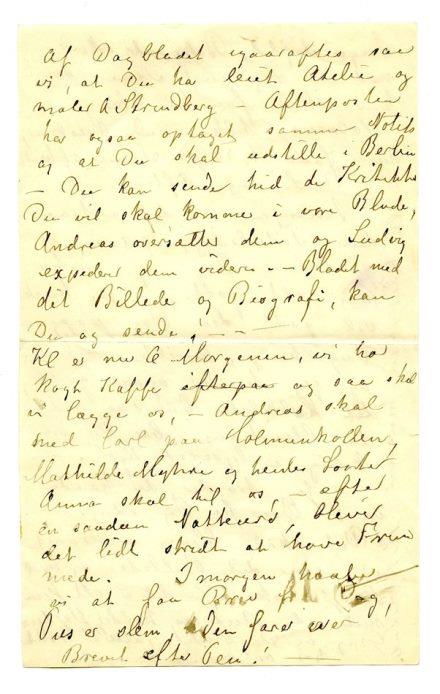 Af Dagbladet igaaraftes saa
vi, at Du har leiet Atelie og
maler A Strindberg – Aftenposten
har ogsaa optaget samme Notits
og at Du skal udstille i Berlin
– Du kan sende hid de Kritikker
Du vil skal komme i vore Blade,
Andreas oversætter dem og Ludvig
expederer dem videre. – Bladet med
dit Billede og Biografi, kan
Du og sende! – –
Kl er nu 6 Morgenen, vi har
kogt Kaffe efterpaa og saa skal
vi lægge os, – Andreas skal
med Carl paa Holmenkollen, –
Mathilde Myhre og hendes Søster
Anna skal til os, – efter
en saadan Nattevard, bliver
det lidt stridt at have Frem
mede. I morgen haaber
vi at faa Brev fra Dig,
Pus er slem, den farer over
Brevet efter Pen! –